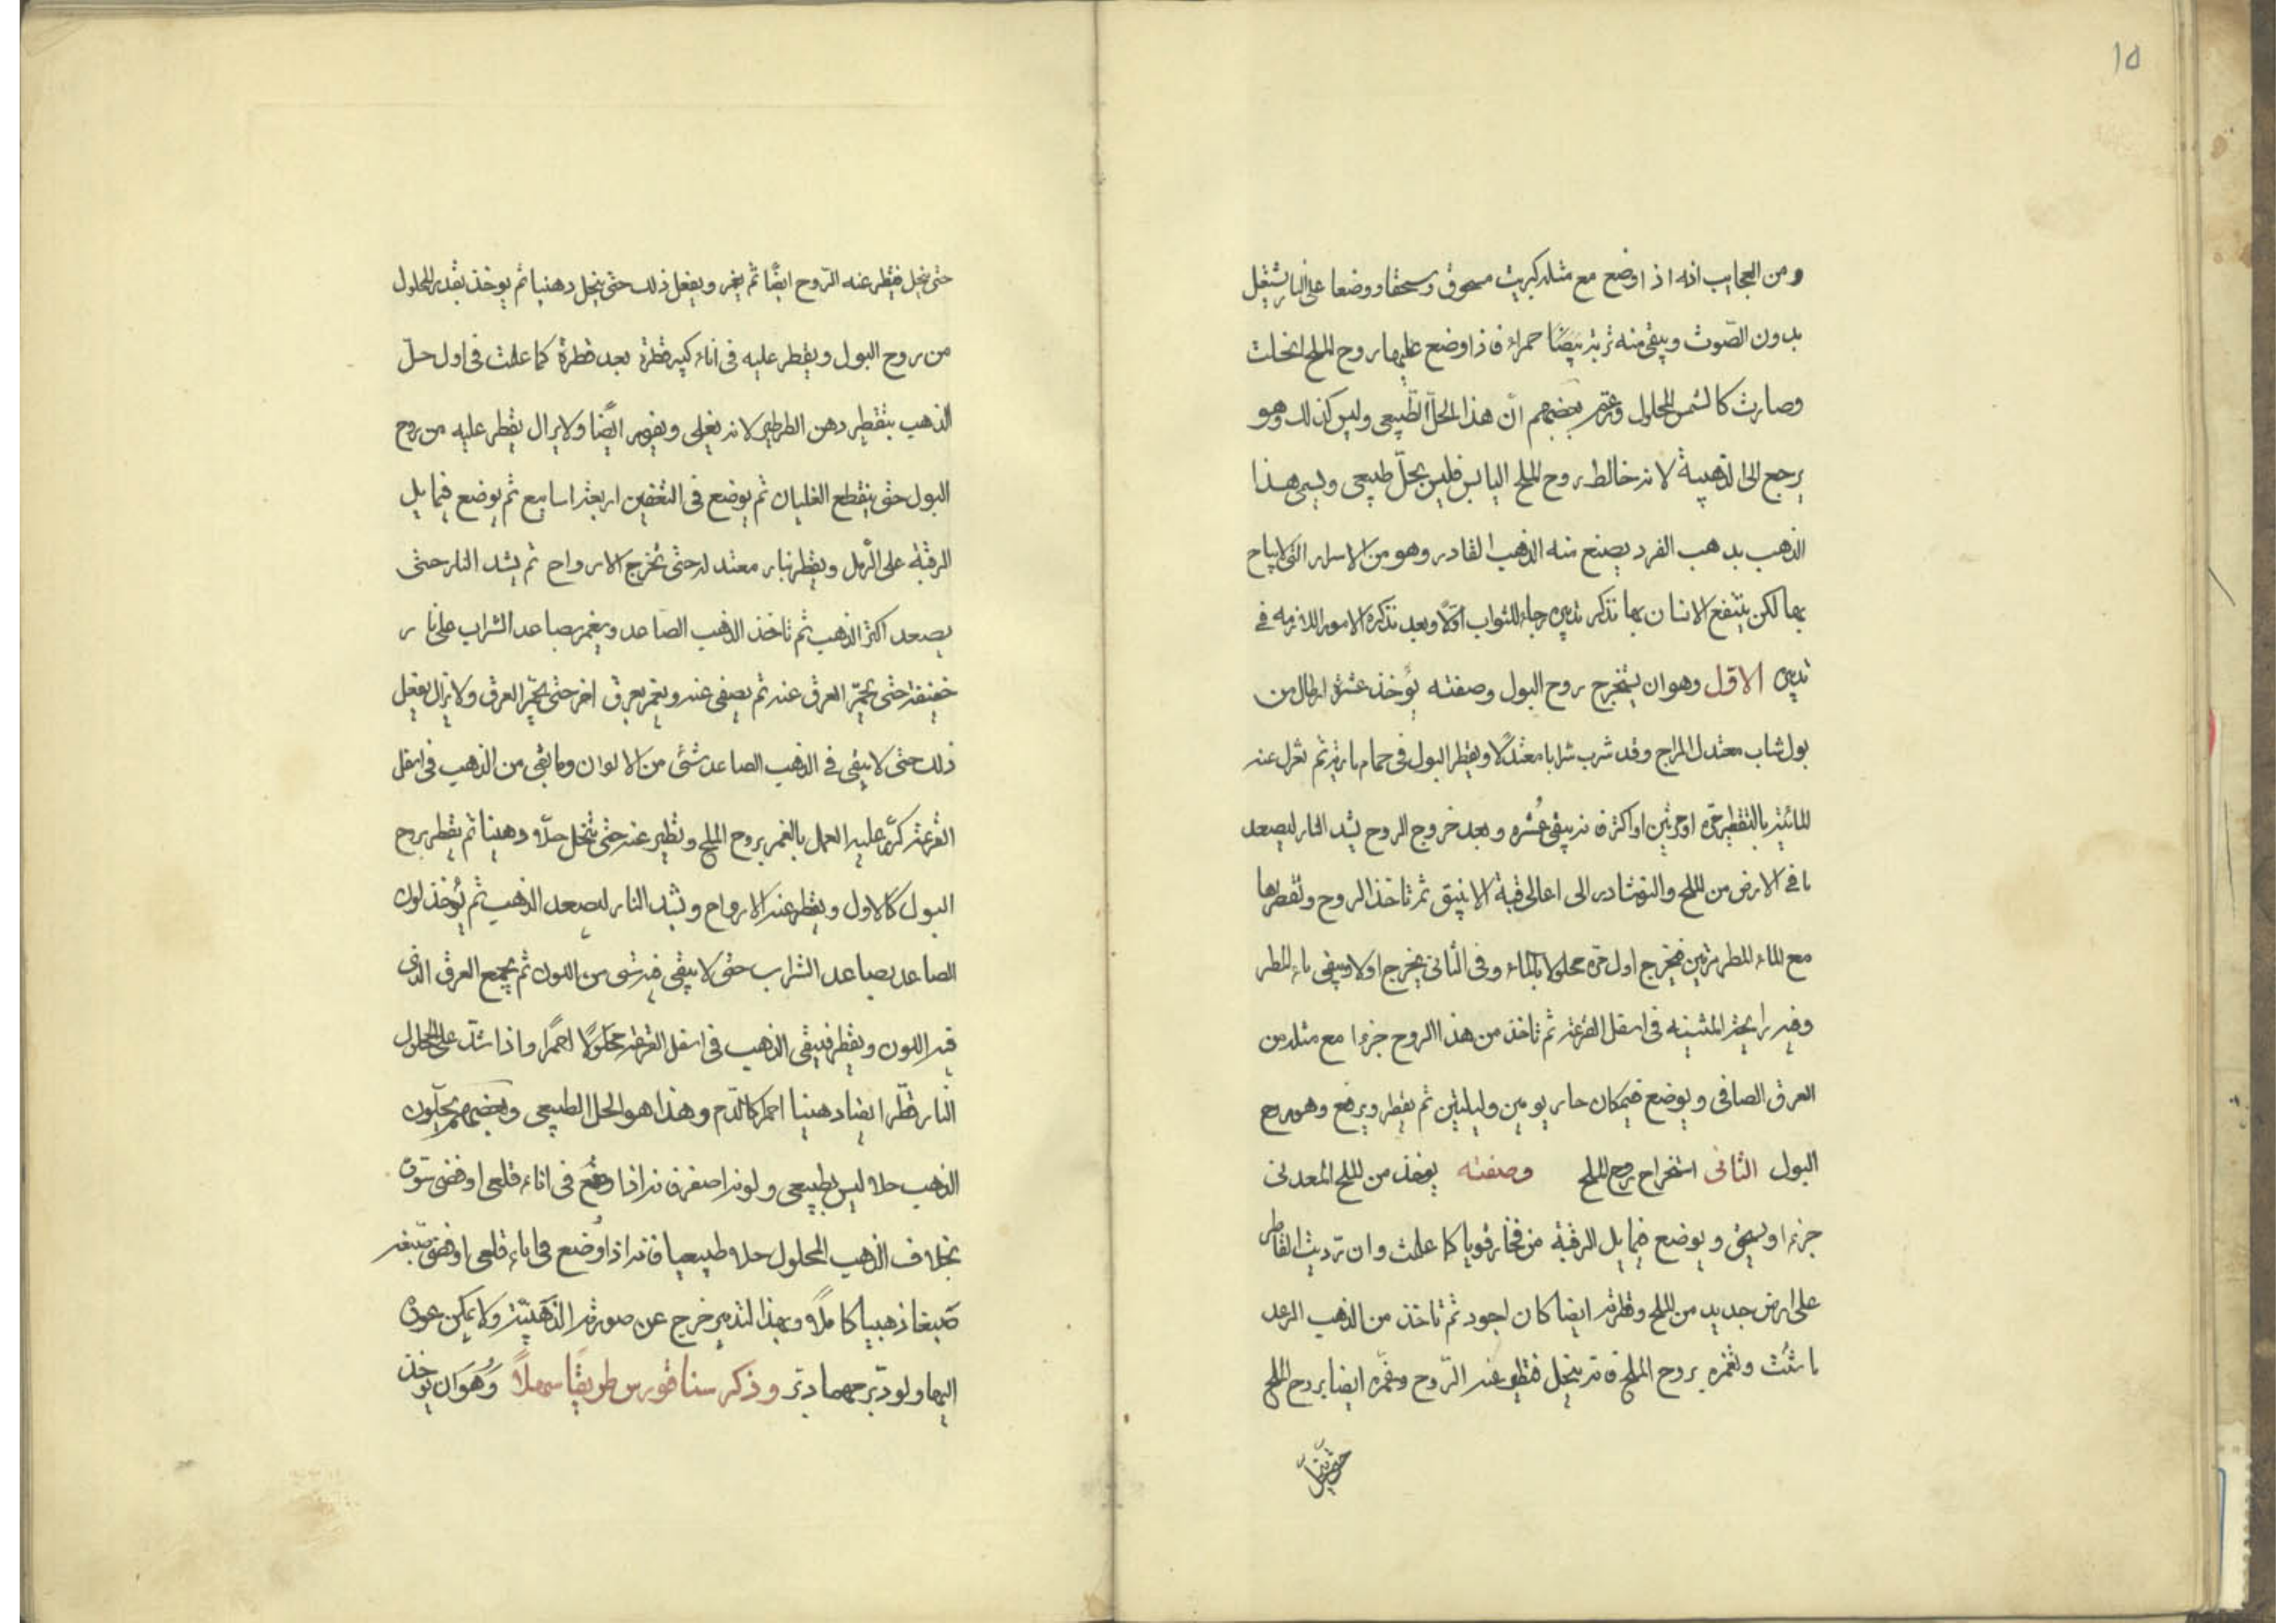 10
ومن العجايب انه اذا وضع مع مثله كبريت مسحوق وسحقا ووضعا على النار يشتعل
بدون الصوت ويبقى منه تربة حمراء فاذا وضع عليها روح الملح انحلت
وصارت كالشمس المحلول وزعم بعضهم ان هذا الحل الطبيعى وليس كذلك وهو
يرجع الى الذهبية لانه خالط روح الملح اليابس فليس بحل طبيعى ويسمى هذا
الذهب بذهب الفرد يصنع منه الذهب القادر وهو من الاسرار التى لا يباح
بها لكن ينتفع الانسان بها نذكر تدبيره رجاء للثواب اولا وبعد نذكره الامور اللازمه فى
تدبيره الاول وهو ان يستخرج روح البول وصفته يؤخذ عشرة ارطال من
بول شاب معتدل المزاج وقد شرب شرابا معتدلا ويقطر البول فى حمام مارية ثم تعزل عنه
المائية بالتقطير مرة او مرتين او اكثر فانه يبقى عشره وبعد خروج الروح يشد النار ليصعد
ما فى الارض من الملح والنوشادر الى اعالى قبة الانبيق ثم تاخذ الروح وتقطرها
مع الماء المطر مرتين فيخرج اول مرة محلولا بالماء وفى الثانى يخرج اولا ويبقى ماء المطر
وفيه رايحة المثينه فى اسفل القرعة ثم تاخذ من هذا الروح جزءا مع مثله من
العرق الصافى ويوضع فى مكان حار يومين وليلتين ثم يقطر ويرفع وهو روح
البول الثانى استخراج روح الملح وصفته يؤخذ من الملح المعدنى
جزءا ويسحق ويوضع فى مايل الرقبة من فخار قويا كما علمت وان رديت القاطر
على ارض جديد من الملح وقطرته ايضا كان اجود ثم تاخذ من الذهب الرعد
ما شئت وتغمره بروح الملح فانه ينحل فتقطر عنه الروح وتغمره ايضا بروح الملح
حتى ينحل
حتى ينحل فيقطر عنه الروح ايضا ثم يغمر ويفعل ذلك حتى ينحل دهنيا ثم يوخذ بقدر المحلول
من روح البول ويقطر عليه فى اناء كبير قطرة بعد قطرة كما علمت فى اول حل
الذهب بتقطير دهن الطرطير لانه يغلى ويفور ايضا ولا يزال يقطر عليه من روح
البول حتى ينقطع الغليان ثم يوضع فى التعفين اربعة اسابيع ثم يوضع فى مايل
الرقبة على الرمل ويقطر بنار معتدلة حتى تخرج الارواح ثم يشد النار حتى
يصعد اكثر الذهب ثم تاخذ الذهب الصاعد ويغمر بصاعد الشراب على نار
خفيفة حتى يحمر العرق عنه ثم يصفى عنه ويغمر بعرق اخر حتى يحمر العرق ولا يزال يفعل
ذلك حتى لا يبقى فى الذهب الصاعد شئ من الالوان وما بقى من الذهب فى اسفل
القرعة كرر عليه العمل بالغمر بروح الملح وتطير عنه حتى تنحل حلا دهنيا ثم يقطر بروح
البول كالاول ويقطر عنه الارواح ويشد النار ليصعد الذهب ثم يؤخذ لون
الصاعد بصاعد الشراب حتى لا يبقى فيه شى من اللون ثم يجمع العرق الذى
فيه اللون ويقطر فيبقى الذهب فى اسفل القرعة محلولا احمرا واذا شد على المحلول
النار قطر ايضا دهنيا احمر كالدم وهذا هو الحل الطبيعى وبعضهم يحلون
الذهب حلا ليس بطبيعى ولونه اصفر فانه اذا وضع فى اناء قلعى او فضى
بخلاف الذهب المحلول حلا طبيعيا فانه اذا وضع فى اناء قلعى او فضى صبغه
صبغا ذهبيا كاملا وبهذا التدبير خرج عن صورة الذهبية ولا يمكن عوده
اليها ولو دبر مهما دبر وذكر سناقورس طريقا سهلا وهو ان يوخذ